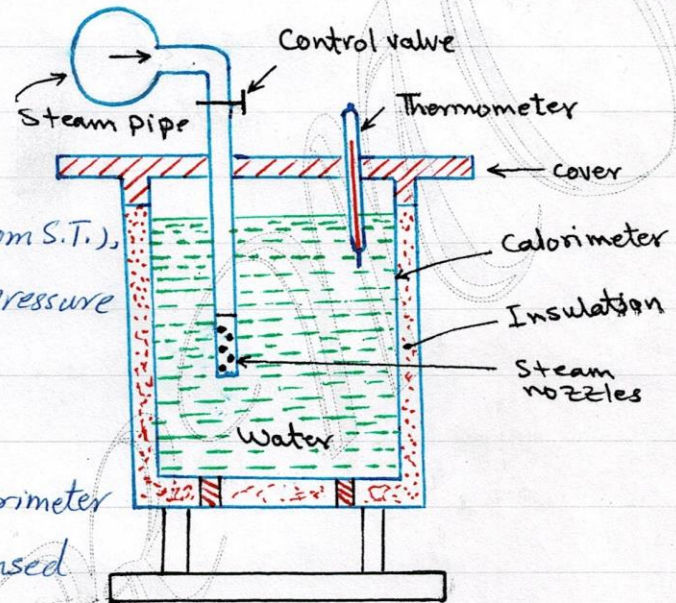 Control valve
Steam pipe
Thermometer
cover
om S.T.),
Calorimeter
ressure
Insulation
Steam
nozzles
Water
rimeter
nsed